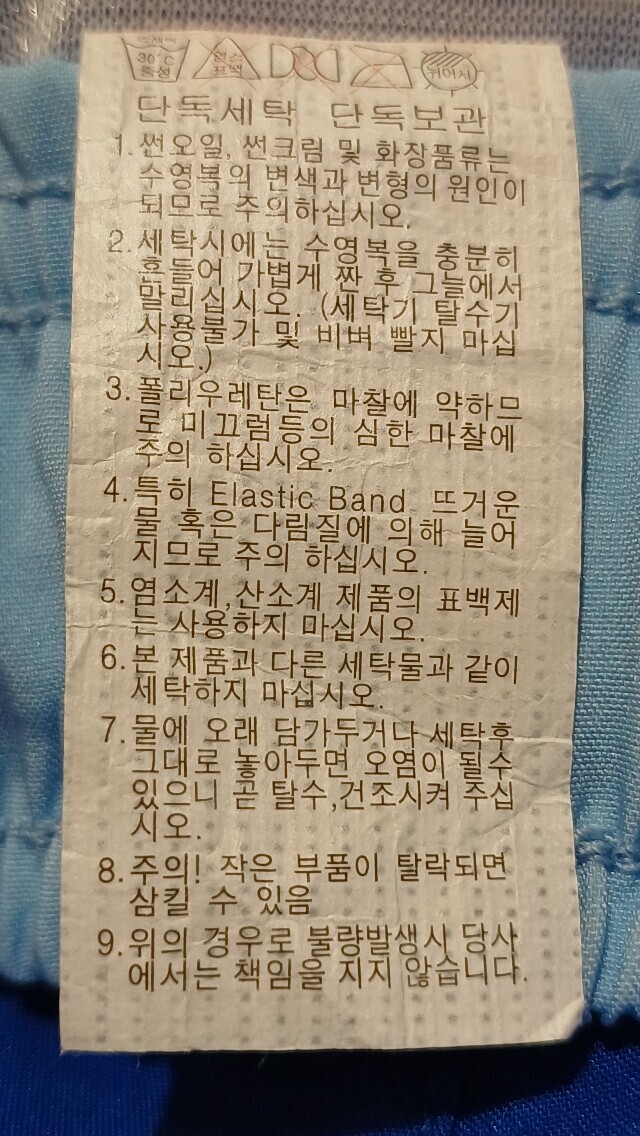 30°C
중성
염소
표백
뉘어서
단독세탁 단독보관
1. 썬오일, 썬크림 및 화장품류는
수영복의 변색과 변형의 원인이
되므로 주의하십시오.
2. 세탁시에는 수영복을 충분히
흔들어 가볍게 짠 후 그늘에서
말리십시오. (세탁기 탈수기
사용불가 및 비벼 빨지 마십
시오.)
3. 폴리우레탄은 마찰에 약하므
로 미끄럼등의 심한 마찰에
주의 하십시오.
4. 특히 Elastic Band 뜨거운
물 혹은 다림질에 의해 늘어
지므로 주의 하십시오.
5. 염소계,산소계 제품의 표백제
는 사용하지 마십시오.
6. 본 제품과 다른 세탁물과 같이
세탁하지 마십시오.
7. 물에 오래 담가두거나 세탁후
그대로 놓아두면 오염이 될수
있으니 곧 탈수,건조시켜 주십
시오.
8. 주의! 작은 부품이 탈락되면
삼킬 수 있음
9. 위의 경우로 불량발생시 당사
에서는 책임을 지지 않습니다.